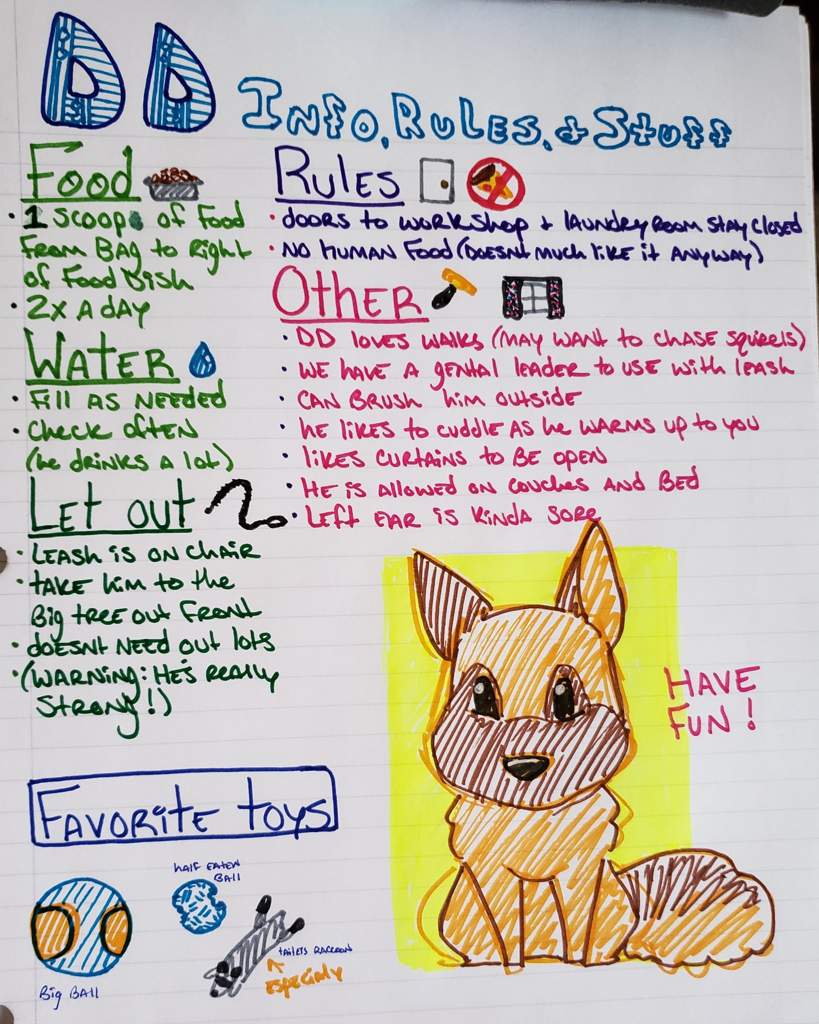 DD Info, Rules, & Stuff
Food
• 1 scoop of food
from bag to right
of food dish
• 2x a day
Water
• Fill as needed
• check often
(he drinks a lot)
Let out
• Leash is on chair
• take him to the
Big tree out front
• doesnt need out lots
• (warning: He's really
strong!)
Rules
• doors to workshop + laundry room stay closed
• No human food (doesnt much like it anyway)
Other
• DD loves walks (may want to chase squirels)
• We have a gental leader to use with leash
• Can brush him outside
• he likes to cuddle as he warms up to you
• likes curtains to be open
• He is allowed on couches and bed
• Left ear is kinda sore
HAVE
FUN!
Favorite toys
half eaten
ball
tailets raccoon
especialy
Big Ball